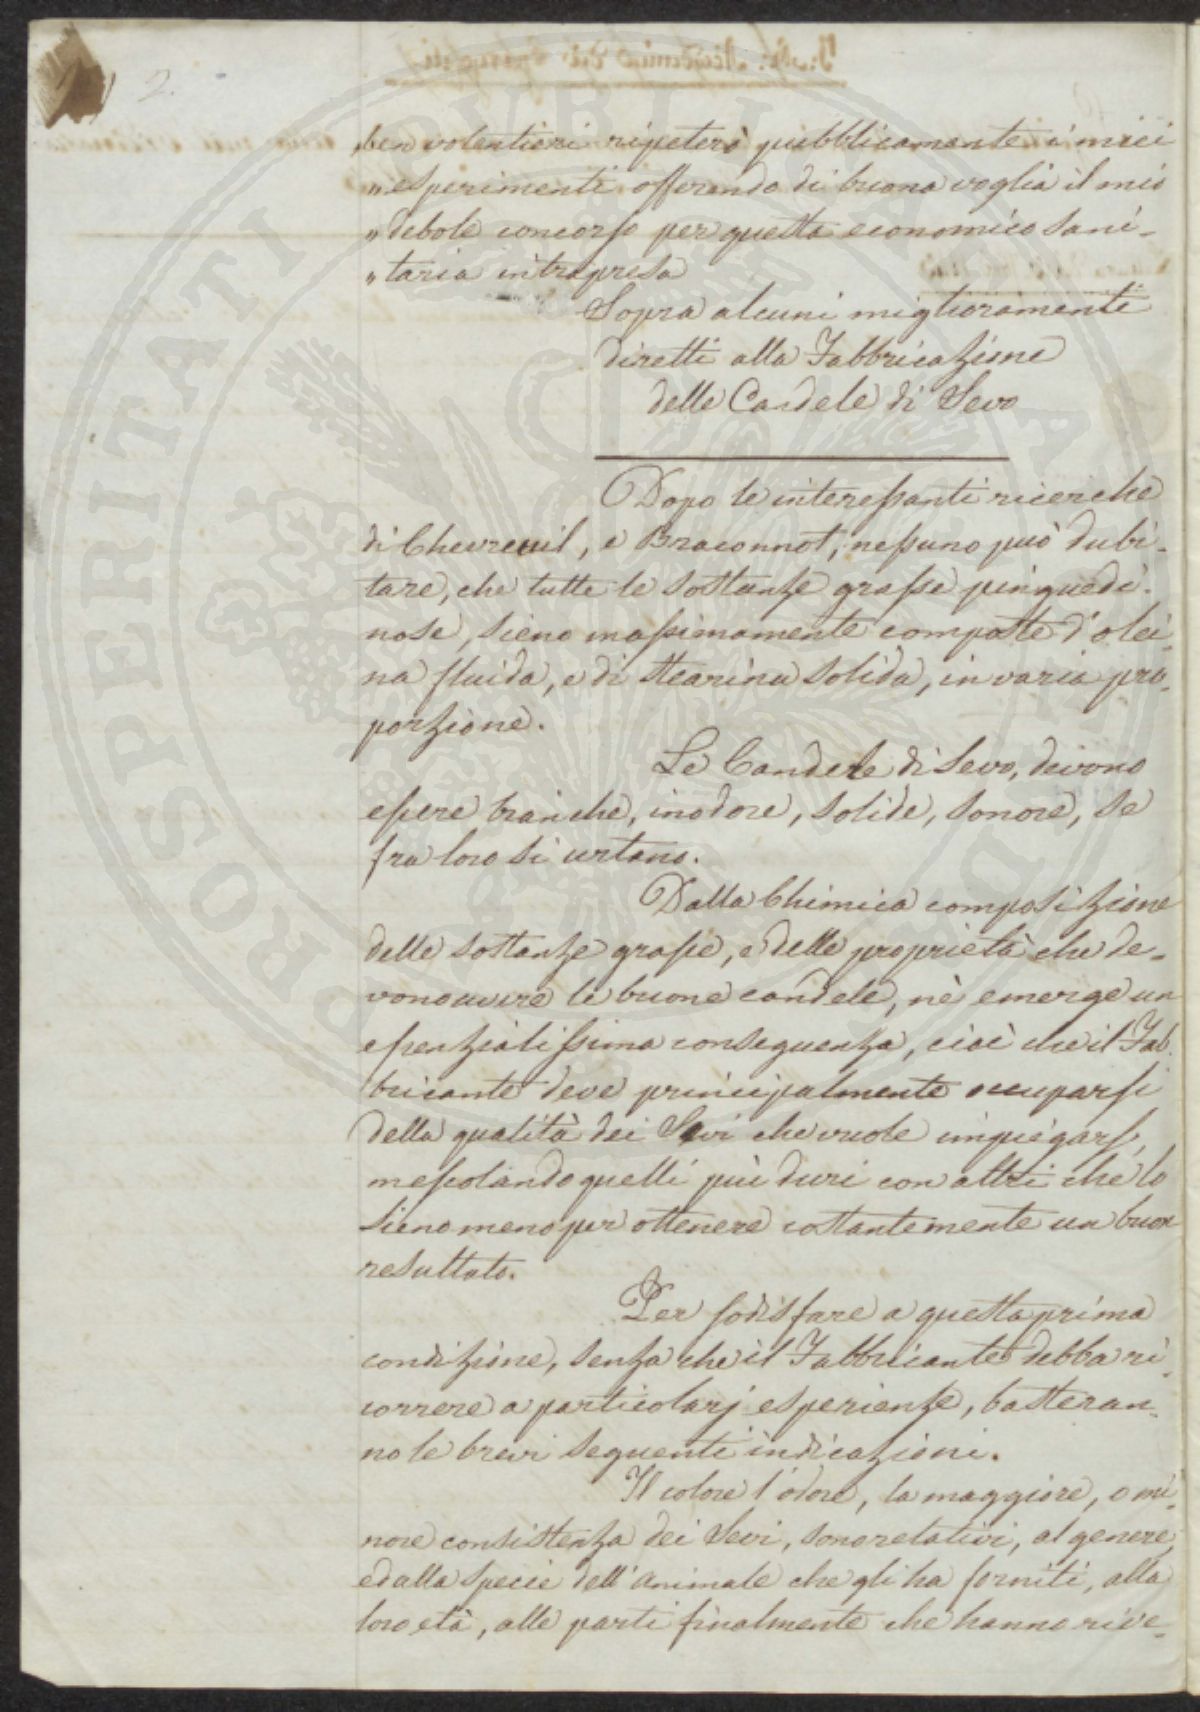 2.
„ben volentieri ripeterò pubblicamente i miei
„esperimenti offerendo di buona voglia il mio
„debole concorso per questa economico sani-
„taria intrapresa
Sopra alcuni miglioramenti
diretti alla Fabbricazione
delle Candele di Sevo
Dopo le interessanti ricerche
di Chevreuil, e Braconnot, nessuno può dubi-
tare, che tutte le sostanze grasse pinguedi-
nose, sieno massimamente composte d'olei-
na fluida, e di stearina solida, in varia pro-
porzione.
Le Candele di Sevo, devono
essere bianche, inodore, solide, sonore, se
fra loro si urtano.
Dalla Chimica composizione
delle sostanze grasse, e delle proprietà che de-
vono avere le buone candele, nè emerge un
essenzialissima conseguenza, cioè che il Fab-
bricante deve principalmente occuparsi
della qualità dei Sevi che vuole impiegarsi,
mescolando quelli più duri con altri che lo
sieno meno per ottenere costantemente un buon
resultato.
Per sodisfare a questa prima
condizione, senza che il Fabbricante debba ri-
correre a particolarj esperienze, basteran-
no le brevi seguenti indicazioni.
Il colore l'odore, la maggiore, o mi-
nore consistenza dei Sevi, sono relativi, al genere,
ed alla specie dell'animale che gli ha forniti, alla
loro età, alle parti finalmente che hanno rive-
PROSPERITATI PUBLICAE AUGENDAE